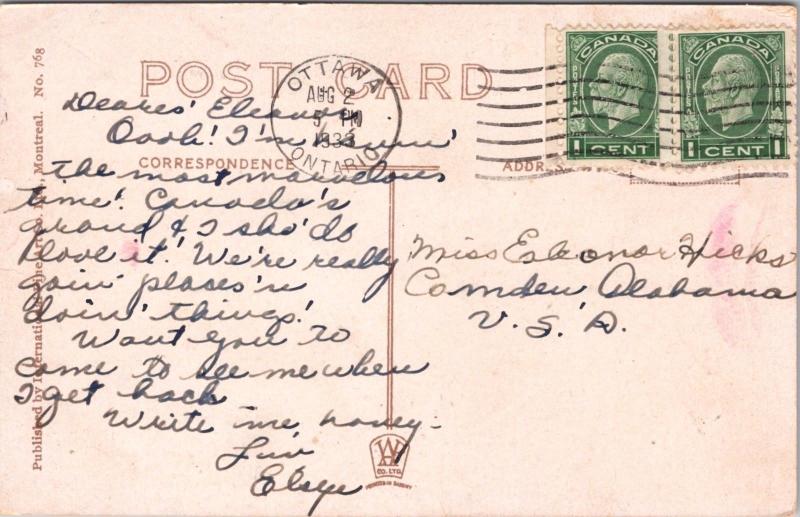 POST CARD
CORRESPONDENCE
ADDRESS
OTTAWA
AUG 2
5 PM
1933
ONTARIO
CANADA
1 CENT
CANADA
1 CENT
Deares' Eleanor
Oooh! I'm havin'
the most marvelous
time! Canada's
grand & I sho' do
love it! We're really
goin' places 'n
doin' things!
Want you to
come to see me when
I get back
Write me, honey-
Luv
Miss Eleanor Hicks
Camden Alabama
U.S.A.
Published by International Fine Art Co. Ltd., Montreal. No. 768
CO. LTD.